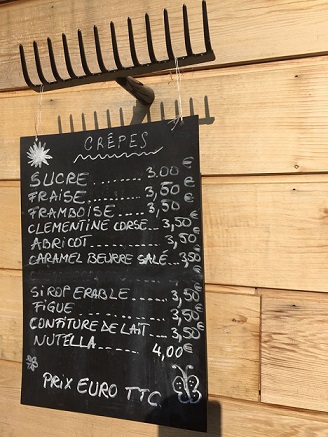 CRÊPES
SUCRE ........ 3.00 €
FRAISE ....... 3,50 €
FRAMBOISE .... 3,50 €
CLEMENTINE CORSE... 3,50 €
ABRICOT ...... 3,50 €
CARAMEL BEURRE SALÉ... 3,50 €
SIROP ERABLE ....... 3,50 €
FIGUE ........ 3,50 €
CONFITURE DE LAIT ... 3,50 €
NUTELLA ...... 4,00 €
PRIX EURO TTC